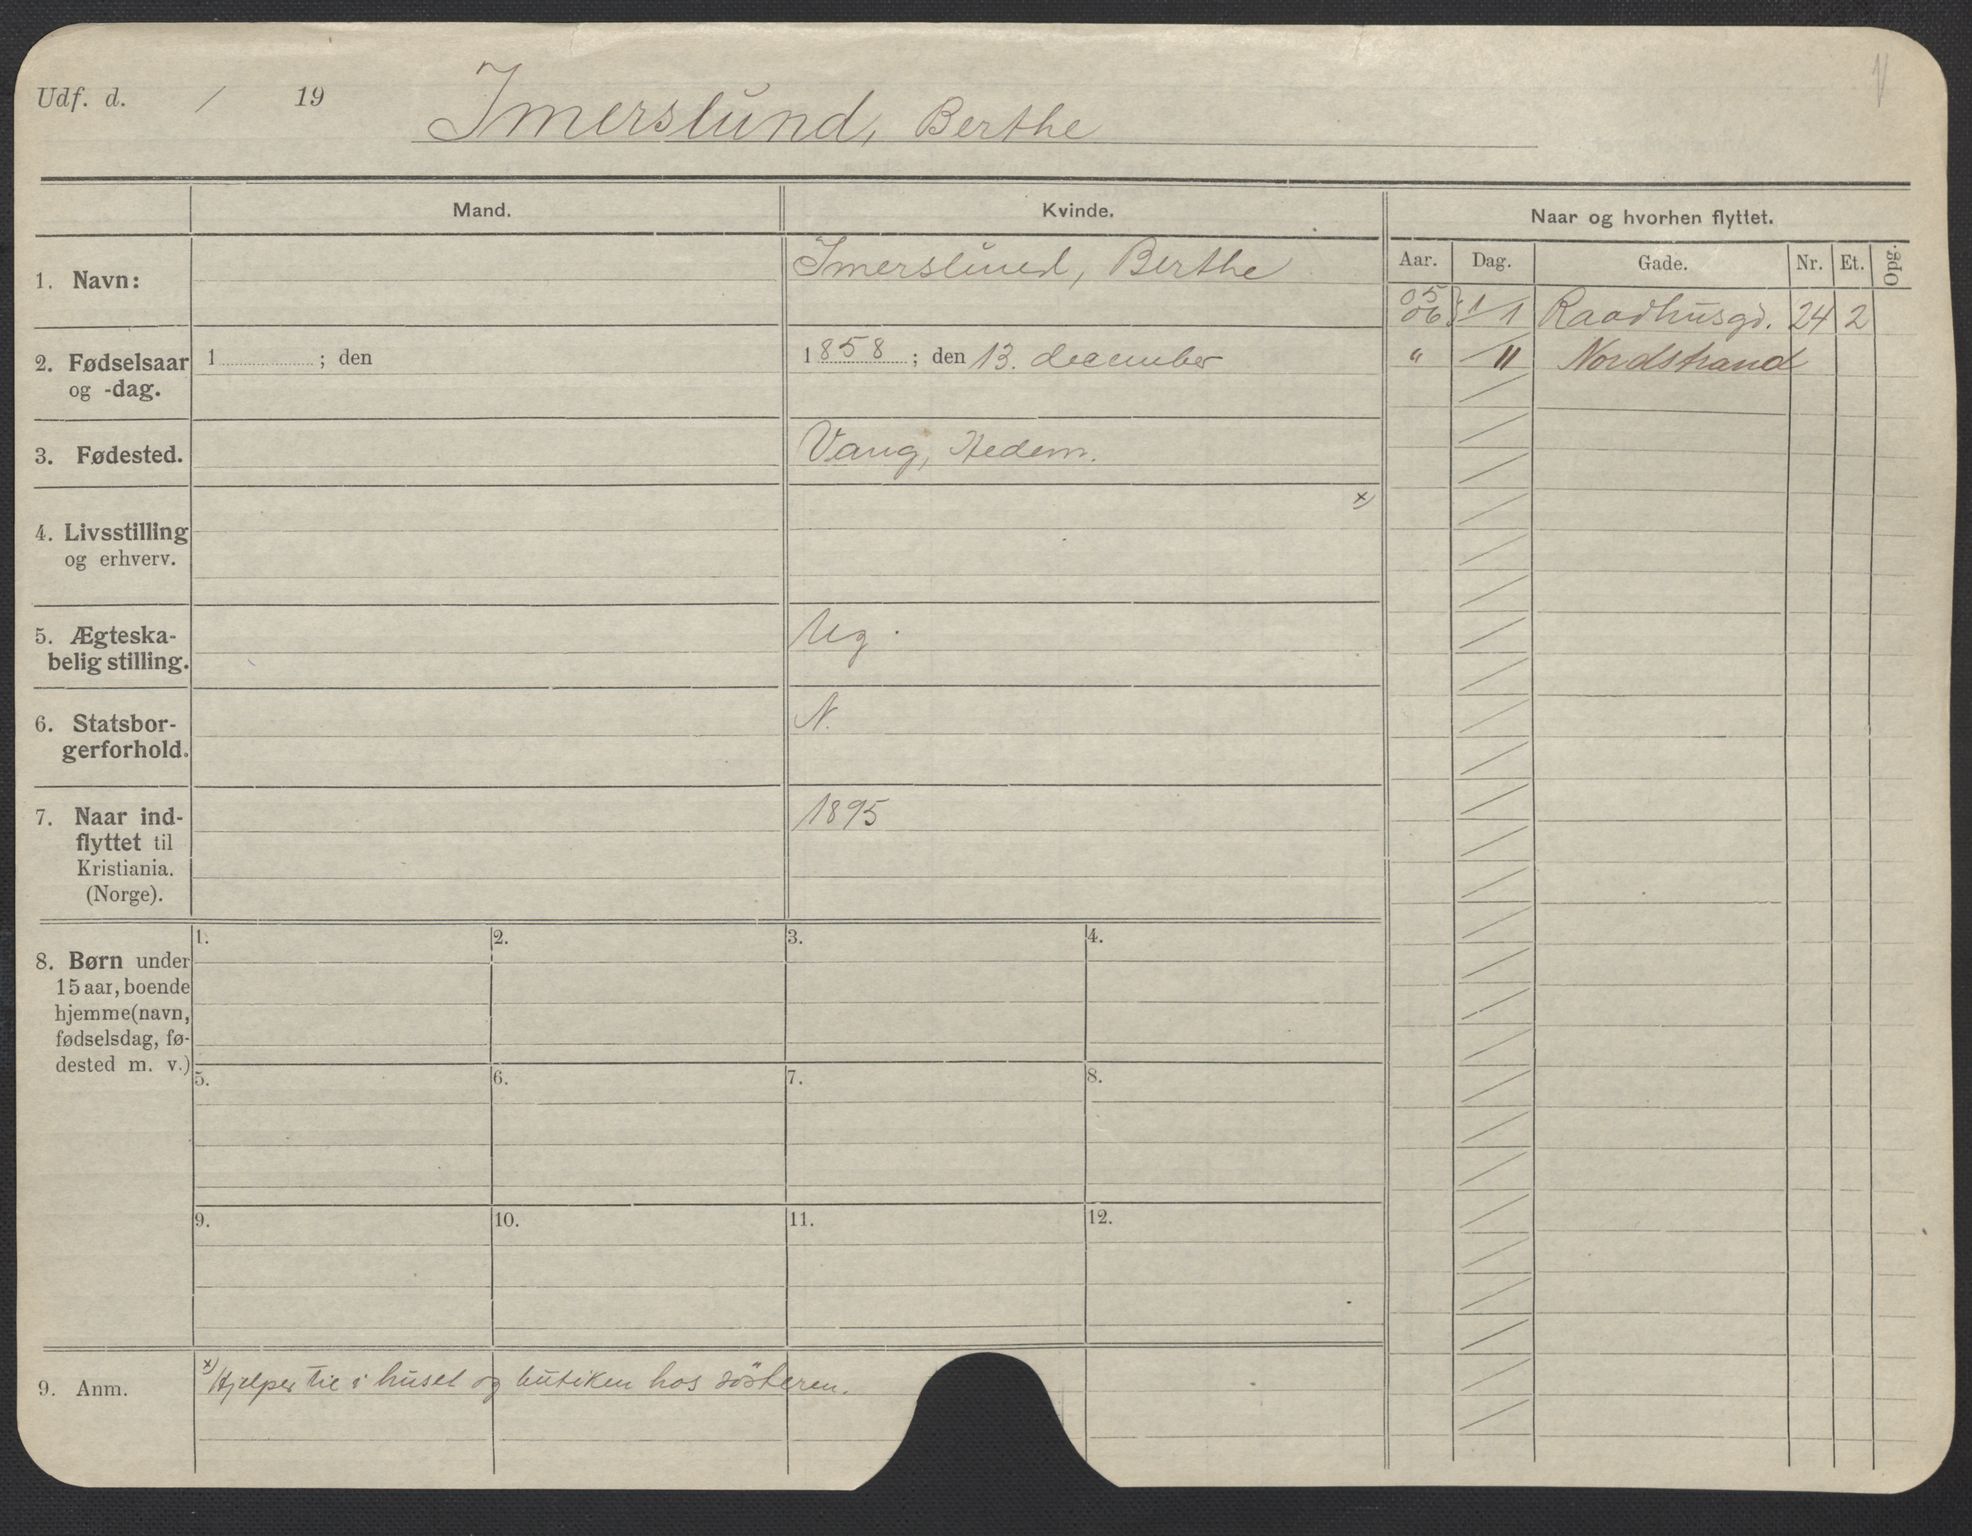 Udf. d. / 19
Imerslund, Berthe
Mand.
Kvinde.
Naar og hvorhen flyttet.
Aar. Dag. Gade. Nr. Et. Opg.
1. Navn:
Imerslund, Berthe
05
06 } 1/1 Raadhusgd. 24 2
" / 11 Nordstrand
2. Fødselsaar
og -dag.
1 ; den
1858 ; den 13. december
3. Fødested.
Vang, Hedem.
4. Livsstilling
og erhverv.
x)
5. Ægteska-
belig stilling.
Ug.
6. Statsbor-
gerforhold.
N.
7. Naar ind-
flyttet til
Kristiania.
(Norge).
1895
8. Børn under
15 aar, boende
hjemme (navn,
fødselsdag, fø-
dested m. v.)
1. 2. 3. 4.
5. 6. 7. 8.
9. 10. 11. 12.
9. Anm.
x) Hjelper til i huset og butiken hos søsteren.